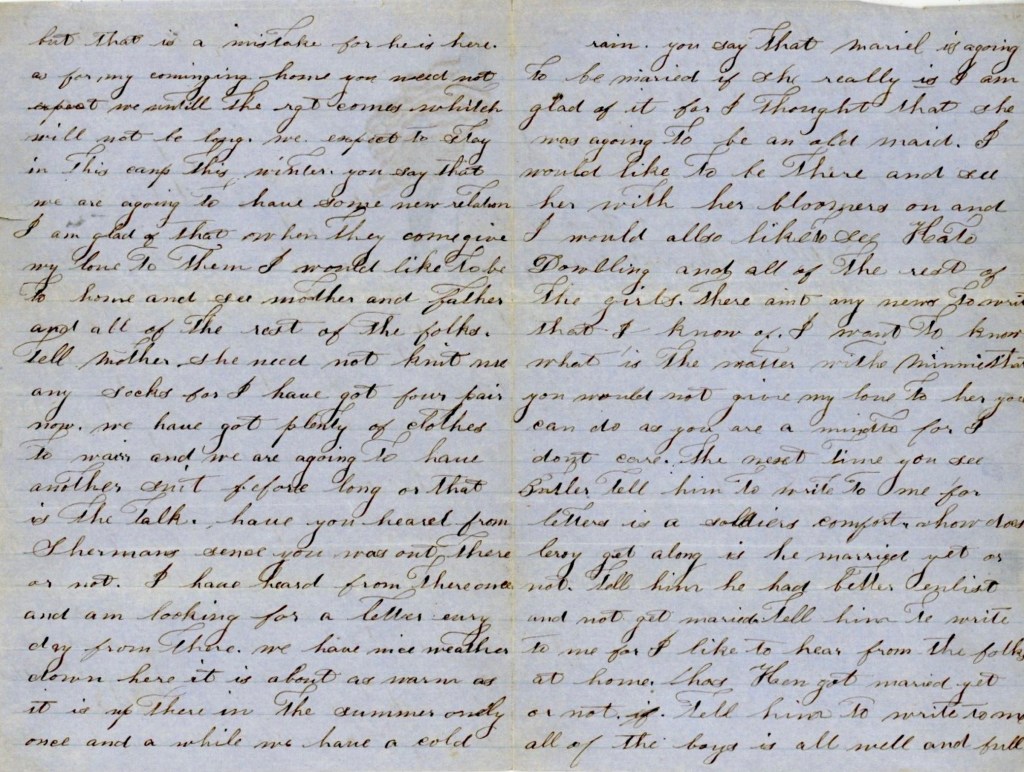 but that is a mistake for he is here.
as for my cominging home you need not
expect me untill the rgt comes whitch
will not be long. we expect to stay
in this camp this winter. you say that
we are agoing to have some new relation
I am glad of that when they come give
my love to them I would like to be
to home and see mother and father
and all of the rest of the folks.
tell mother she need not knit me
any socks for I have got four pair
now. we have got plenty of clothes
to wair and we are agoing to have
another suit before long or that
is the talk. have you heard from
Shermans sence you was out there
or not. I have heard from there once
and am looking for a letter evry
day from there. we have nice weather
down here it is about as warm as
it is up there in the summer only
once and a while we have a cold
rain. you say that mariel is agoing
to be maried if she really is I am
glad of it for I thought that she
was agoing to be an old maid. I
would like to be there and see
her with her bloomers on and
I would allso like to see Kate
Dowlling and all of the rest of
the girls. there aint any news to write
that I know of. I want to know
what is the matter withe Minnie that
you would not give my love to her you
can do as you are a mindto for I
dont care. the next time you see
Butler tell him to write to me for
letters is a soldiers comfort. how does
leroy get along is he married yet or
not. tell him he had better enlist
and not get maried tell him to write
to me for I like to hear from the folks
at home. has Hen got maried yet
or not. tell him to write to me
all of the boys is all well and full